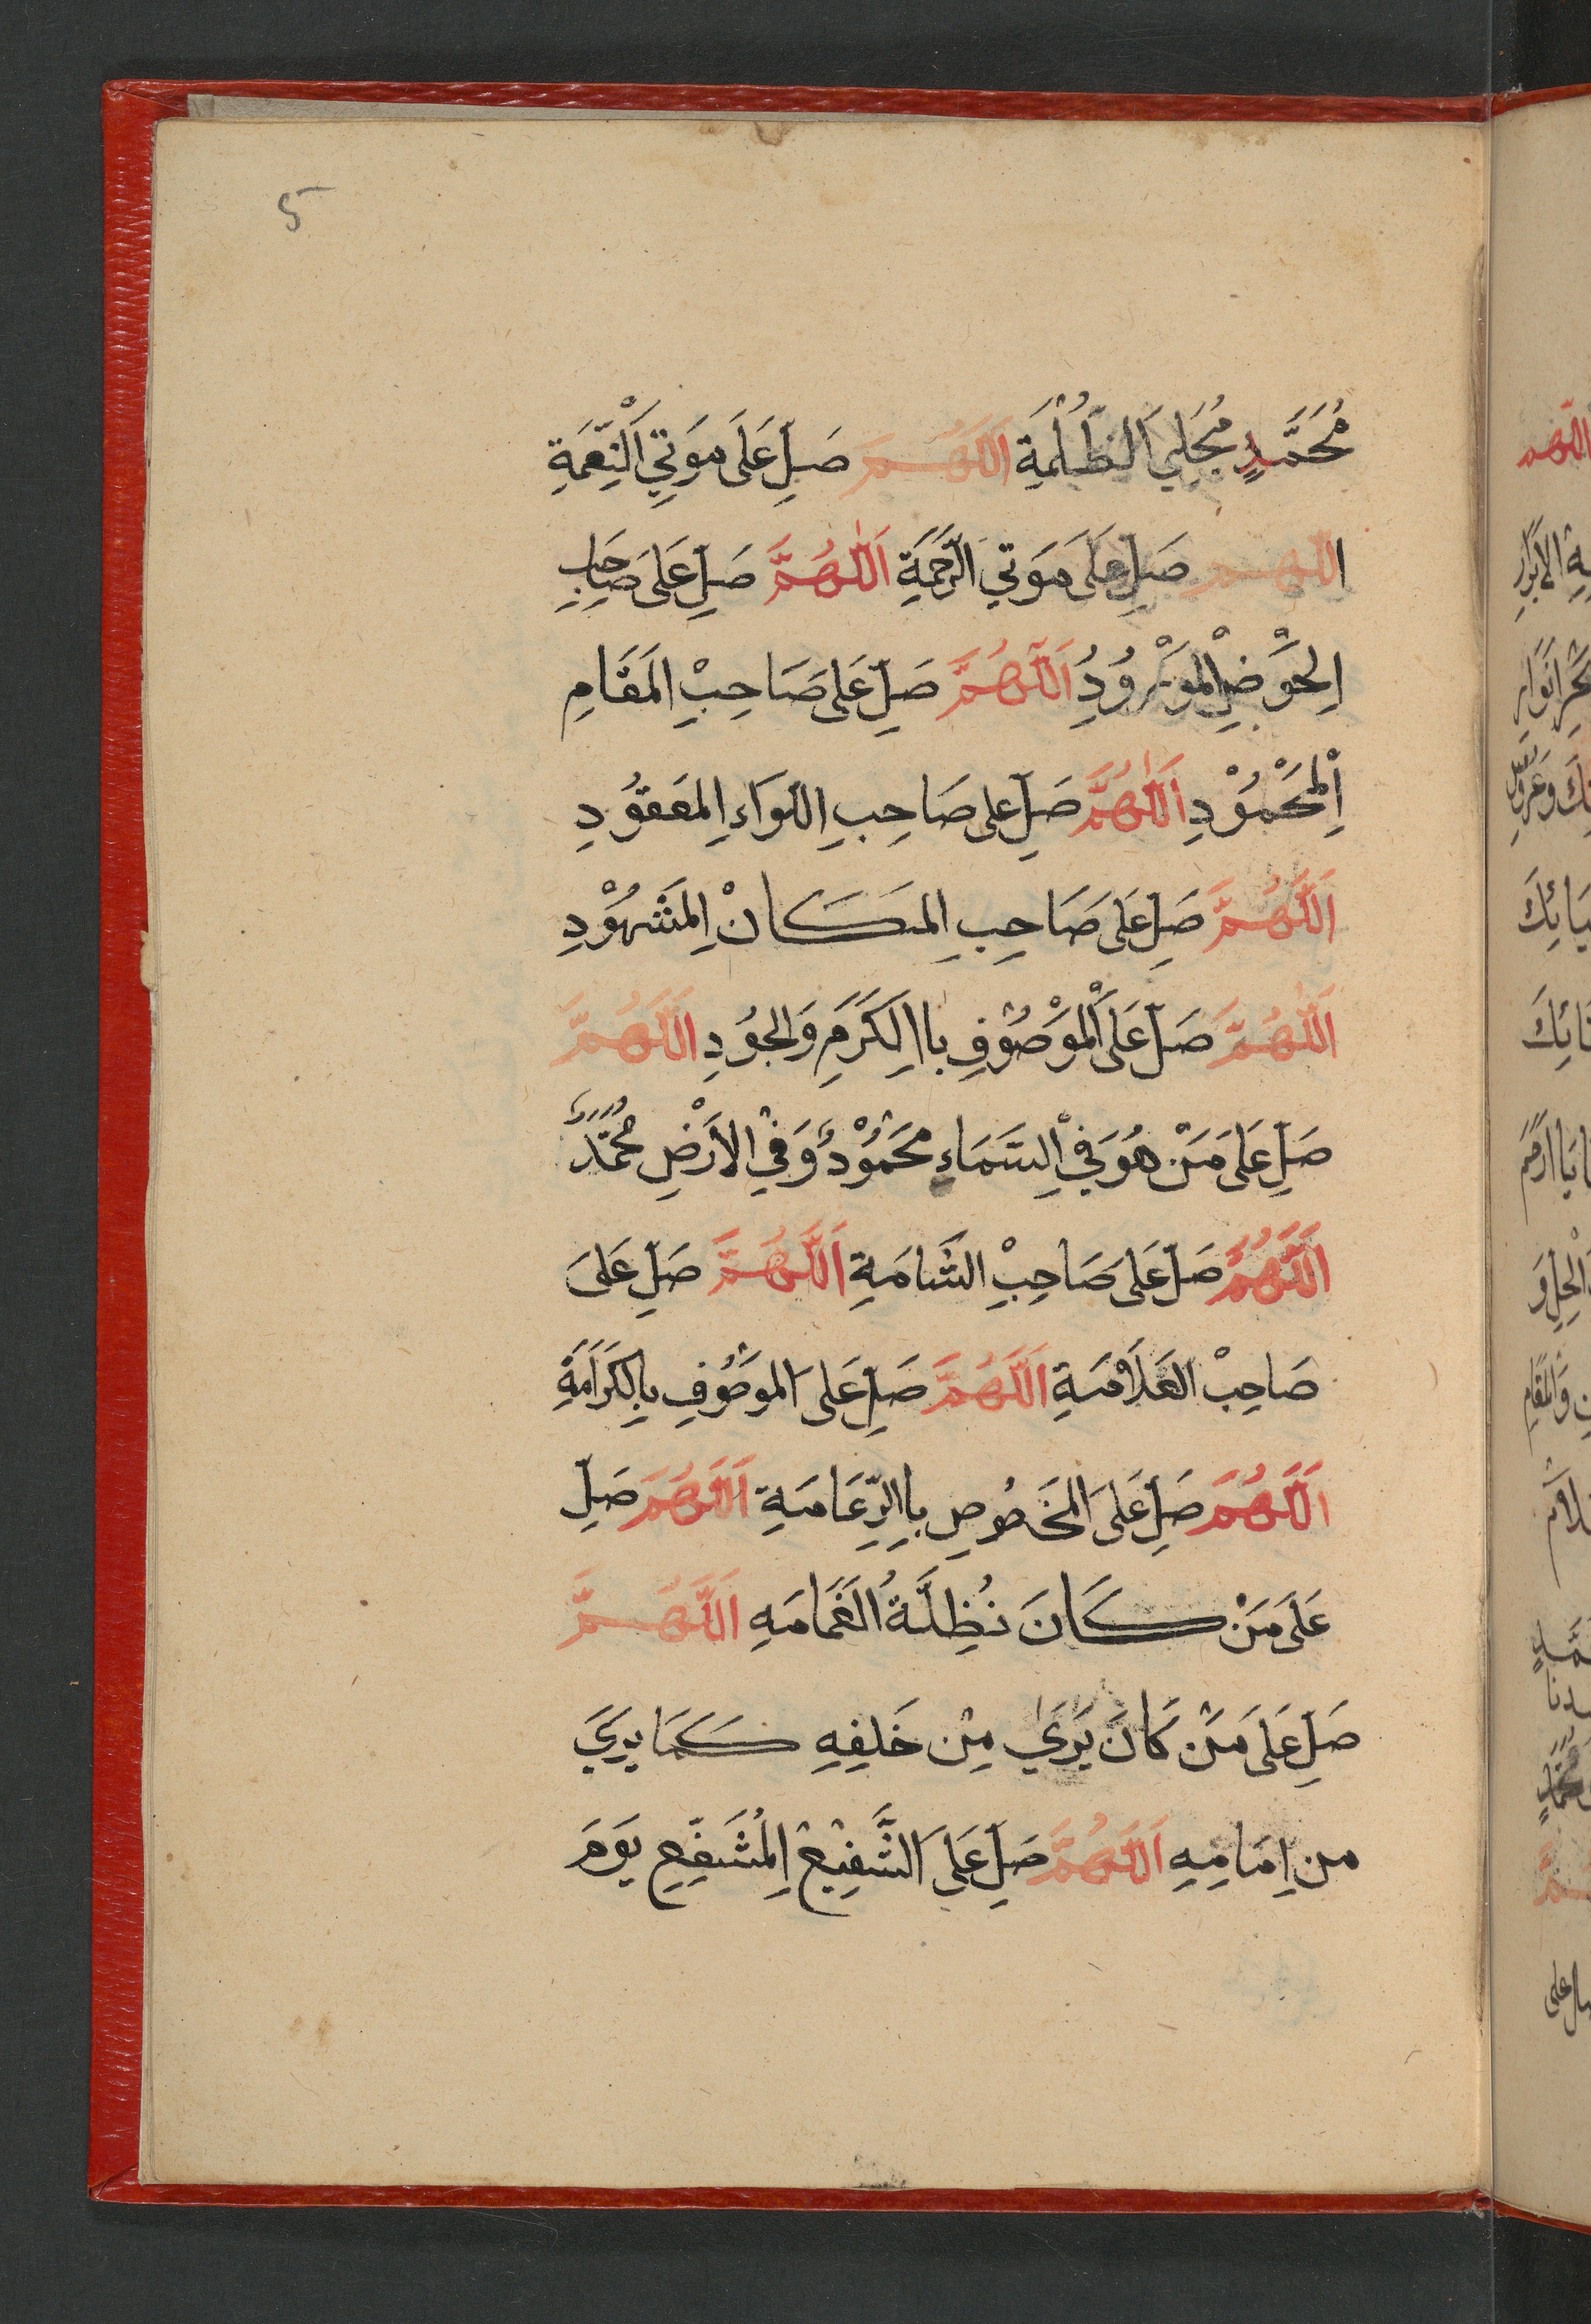 5
مُحَمَّدٍ مُجَلِيَ الظُلْمَةِ اَللَّهُمَّ صَلِ عَلَى مَوَتِي اَلْنِّعَمَةِ
اللهم صَلِ عَلَى مَوَتي الرَّحَمَةِ اَللّٰهُمَّ صَلِ عَلَى صَاحِبِ
اِلحَوْضِ اْلمَوْرُودِ اَللَّهُمَّ صَلِّ عَلَى صَاحِبِ المَقَامِ
اِلْمَحْمُوْدِ اَللّٰهُمَّ صَلِ على صَاحِبِ اللوَاءِ اِلمعَقوُدِ
اَللَّهُمَّ صَلِ عَلَى صَاحِبِ المَكَانْ اِلمَشْهُوْدِ
اَللّٰهُمَّ صَل عَلَى اَلْمَوْصُوْفِ باالِكَرَمِ وَالجوُدِ اللَّهُمَّ
صَلِ عَلَى مَنْ هُوَ فيِ اْلسَمَاءِ محَمُوْدٌ وَفيْ الأرْضِ مُحَمَّدٌ
اَللَّهُمَّ صَل عَلَى صَاحِبِ الشَامَةِ اَللَّهُمَّ صَلِ عَلىَ
صَاحِبْ العَلاَمَةِ اَللَّهُمَّ صَلِ عَلَى المَوصُوْفِ بِالِكَرَامَةِ
اَللَّهُمَ صَلِ عَلَى المَخَصُوصِ بِاالزِّعَامَةِ اَللَّهُمَ صَلِ
عَلَى مَنْ كَانَ تُظِلَّةُ الغَمَامَهِ اَللَّهُمَّ
صَلِ عَلَى مَنْ كَانَ يَرَىٰ مِنْ خَلفِهِ كَمَا يرَيَ
من اِمَامِهِ اَللَهُمَّ صَلِ عَلَى الشَّفِيْعْ اِلمُشَفِّعِ يوَمَ